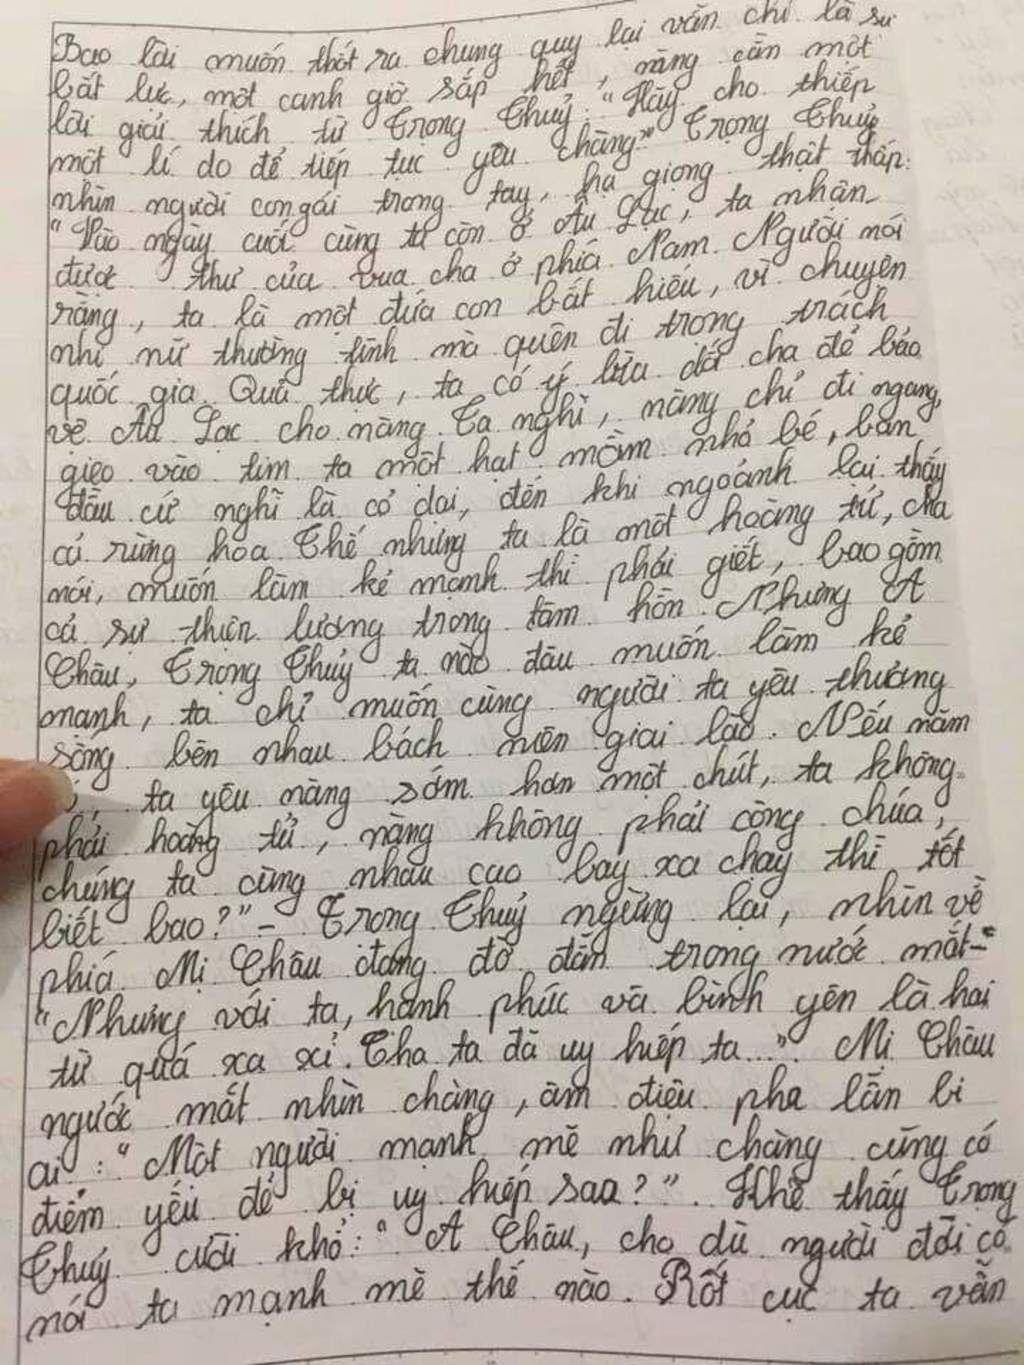 Bao lời muốn thốt ra chung quy lại vẫn chỉ là sự
bất lực, một canh giờ sắp hết, nàng cần một
lời giải thích từ Trọng Thuỷ: "Hãy cho thiếp
một lí do để tiếp tục yêu chàng." Trọng Thuỷ
nhìn người con gái trong tay, hạ giọng thật thấp:
"Vào ngày cuối cùng ta còn ở Âu Lạc, ta nhận
được thư của vua cha ở phía Nam. Người nói
rằng, ta là một đứa con bất hiếu, vì chuyện
nhi nữ thường tình mà quên đi trọng trách
quốc gia. Quả thực, ta có ý lừa dối cha để bảo
vệ Âu Lạc cho nàng. Ta nghĩ, nàng chỉ đi ngang,
gieo vào tim ta một hạt mầm nhỏ bé, ban
đầu cứ nghĩ là cỏ dại, đến khi ngoảnh lại thấy
cả rừng hoa. Thế nhưng ta là một hoàng tử, cha
nói, muốn làm kẻ mạnh thì phải giết, bao gồm
cả sự thiện lương trong tâm hồn. Nhưng A
Châu, Trọng Thuỷ ta nào đâu muốn làm kẻ
mạnh, ta chỉ muốn cùng người ta yêu thương
sống bên nhau bách niên giai lão. Nếu năm
ta yêu nàng sớm hơn một chút, ta không
phải hoàng tử, nàng không phải công chúa,
chúng ta cùng nhau cao bay xa chạy thì tốt
biết bao?" - Trọng Thuỷ ngừng lại, nhìn về
phía Mị Châu đang đờ đẫn trong nước mắt -
"Nhưng với ta, hạnh phúc và bình yên là hai
từ quá xa xỉ. Cha ta đã uy hiếp ta...". Mị Châu
ngước mắt nhìn chàng, âm điệu pha lẫn bi
ai: "Một người mạnh mẽ như chàng cũng có
điểm yếu để bị uy hiếp sao?". Khẽ thấy Trọng
Thuỷ cười khổ: "A Châu, cho dù người đời có
nói ta mạnh mẽ thế nào. Rốt cục ta vẫn